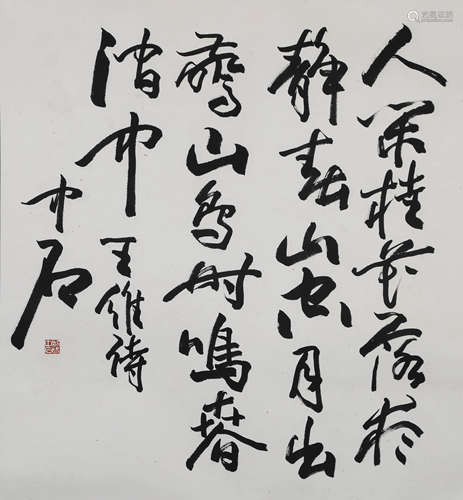 人閒桂花落夜
静春山空月出
驚山鳥時鳴春
澗中 王維詩
中石